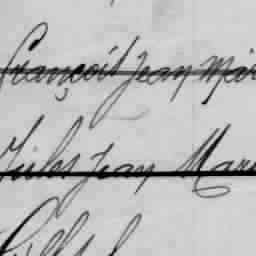 François Jean Mar
Jules Jean Mari